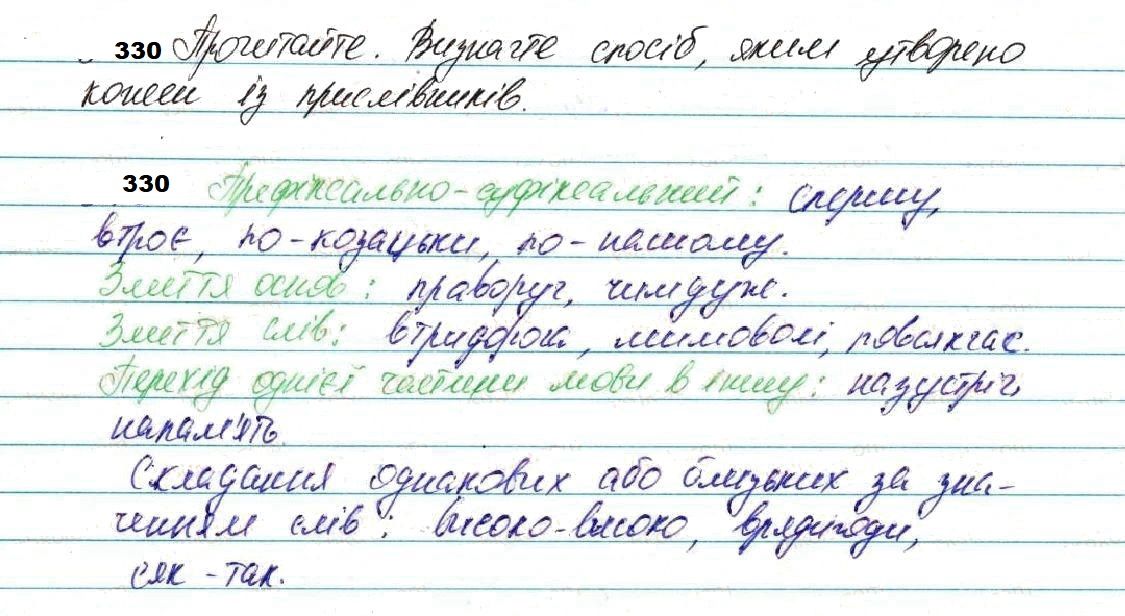 330 Прочитайте. Визначте спосіб, яким утворено
кожен із прислівників.
330 Префіксально-суфіксальний: спершу,
втроє, по-козацьки, по-нашому.
Злиття основ: праворуч, чимдуж.
Злиття слів: втридорога, мимоволі, повсякчас.
Перехід однієї частини мови в іншу: назустріч,
напам'ять.
Складання однакових або близьких за зна-
ченням слів: високо-високо, врядигоди,
сяк-так.